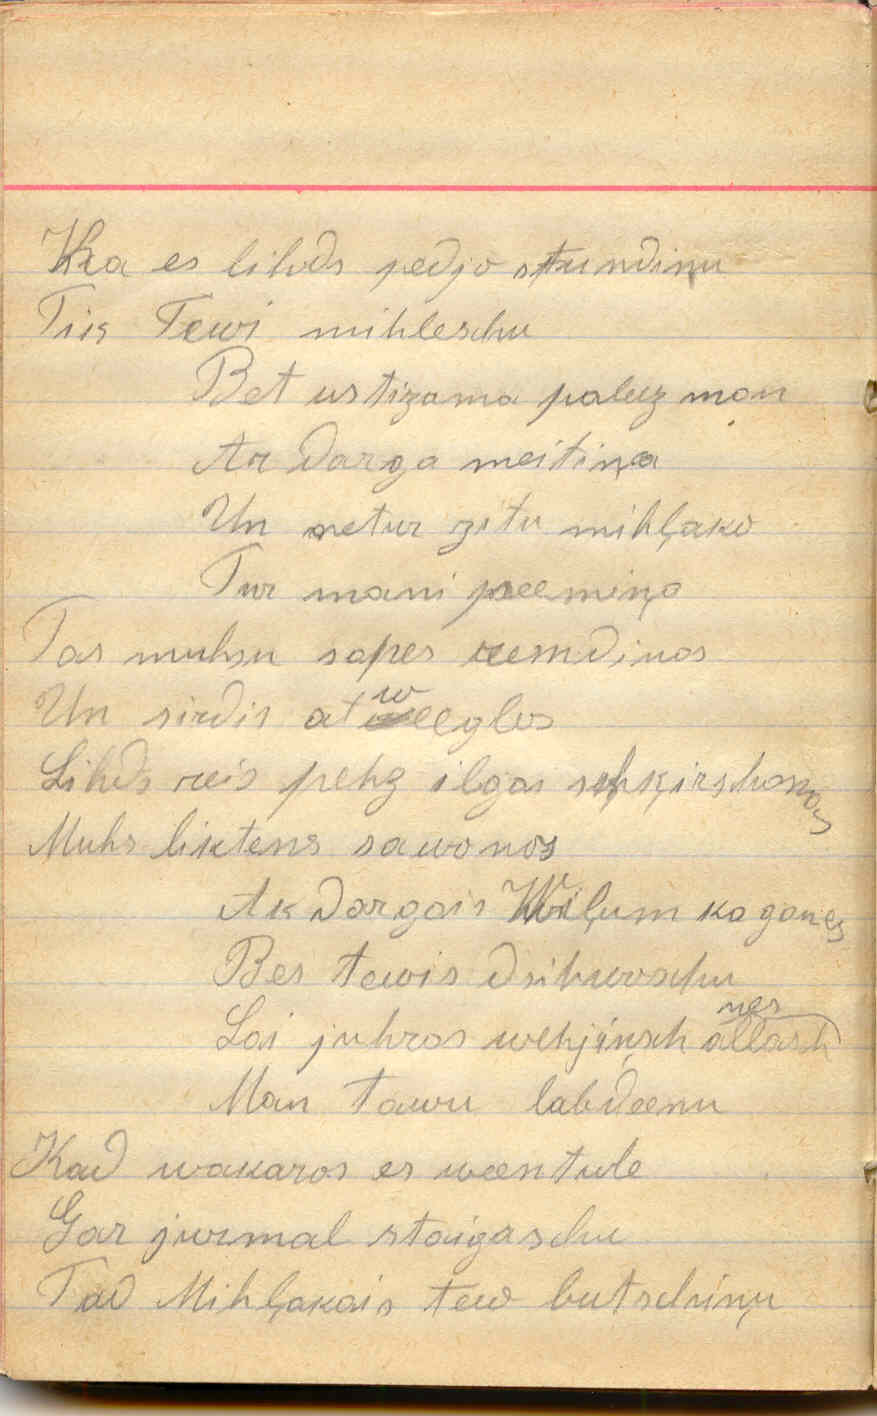 Ka es lihds pedjo stundinu
Tik Tewi mihleschu
Bet ustizama paleez man
Ar darga meitiņa
Un netur zitu mihļako
Tur mani peemiņa
Tas muhsu sapes remdinos
Un sirdis atweeglos
Lihds reis pehz ilgas schķirschanas
Muhs liktens sawonos
Ak dargais Wiļum ka gan es
Bes tewis dsihwoschu
Lai juhras wehjiņsch atnes
Man tawu labdeenu
Kad wakaros es weentule
Gar jurmal staigaschu
Tad Mihļakais tew butschiņu